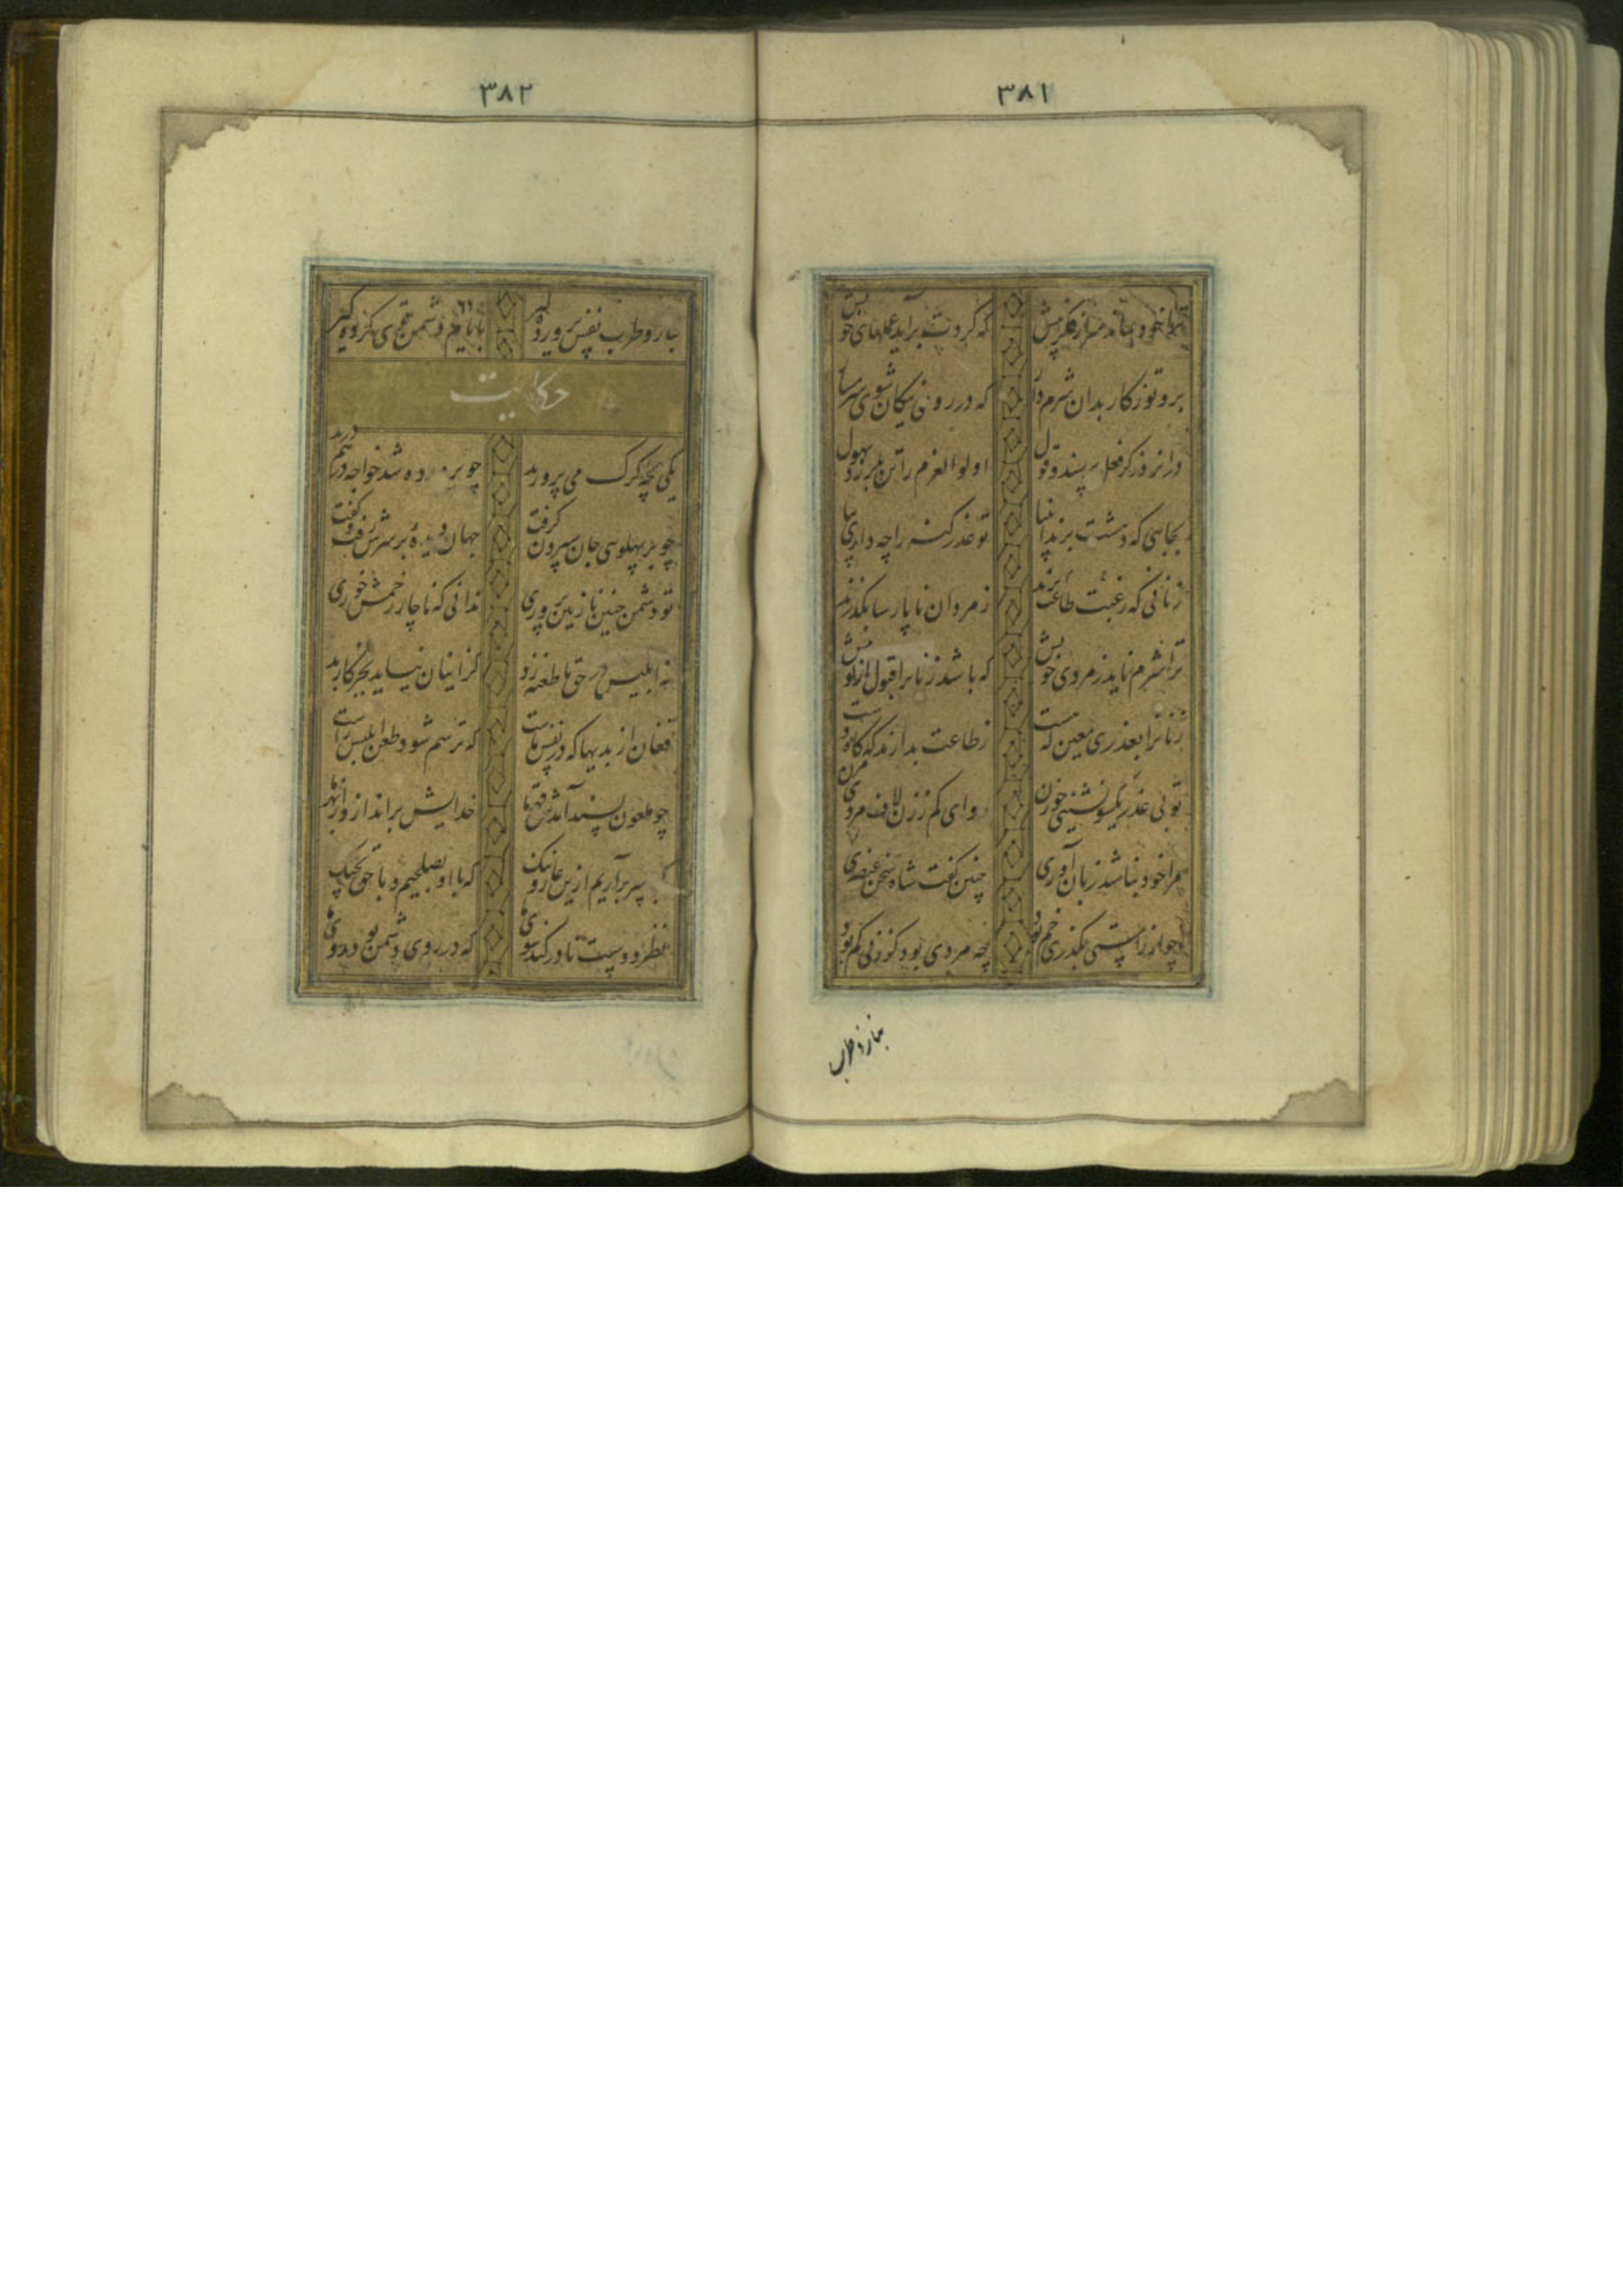 ۳۸۱
سر از فکر پیش که گردت برآید عملهای خویش
برو تو ز کار بدان شرم دار که در روی نیکان شوی شرمسار
دران روز کز فعل پرسند و قول اولوالعزم را تن بلرزد ز هول
بجایی که دهشت برند انبیا تو عذر گنه را چه داری بیا
زنانی که رغبت طاعت برند ز مردان ناپارسا بگذرند
ترا شرم ناید ز مردی خویش که باشد زنانرا قبول از تو بیش
زنانرا بعذری معین که هست ز طاعت بدارند گه گاه دست
تو بی عذر یکسو نشینی چو زن رو ای کم ز زن لاف مردی مزن
مرا خود نباشد زبان آوری چنین گفت شاه سخن عنصری
چو از راستی بگذری خم بود چه مردی بود کز زنی کم بود
بناز و طرب
۳۸۲
بناز و طرب نفس پرورده گیر بایام دشمن قوی کرده گیر
حکایت
یکی بچه گرگ می پرورید چو پرورده شد خواجه برهم درید
چو بر پهلوی جان سپردن گرفت جهان دیده بر سرش رفت و گفت
تو دشمن چنین نازنین پروری ندانی که ناچار زخمش خوری
نه ابلیس در حق ما طعنه زد کز اینان نیاید بجز کار بد
فغان از بدیها که در نفس ماست که ترسم شود ظن ابلیس راست
چو ملعون پسند آمدش قهر ما خدایش برانداز از بهر ما
سر برآریم ازین عار و ننگ که با او بصلحیم و با حق بجنگ
نظر دوست نادر کند سوی تو که در روی دشمن بود روی تو